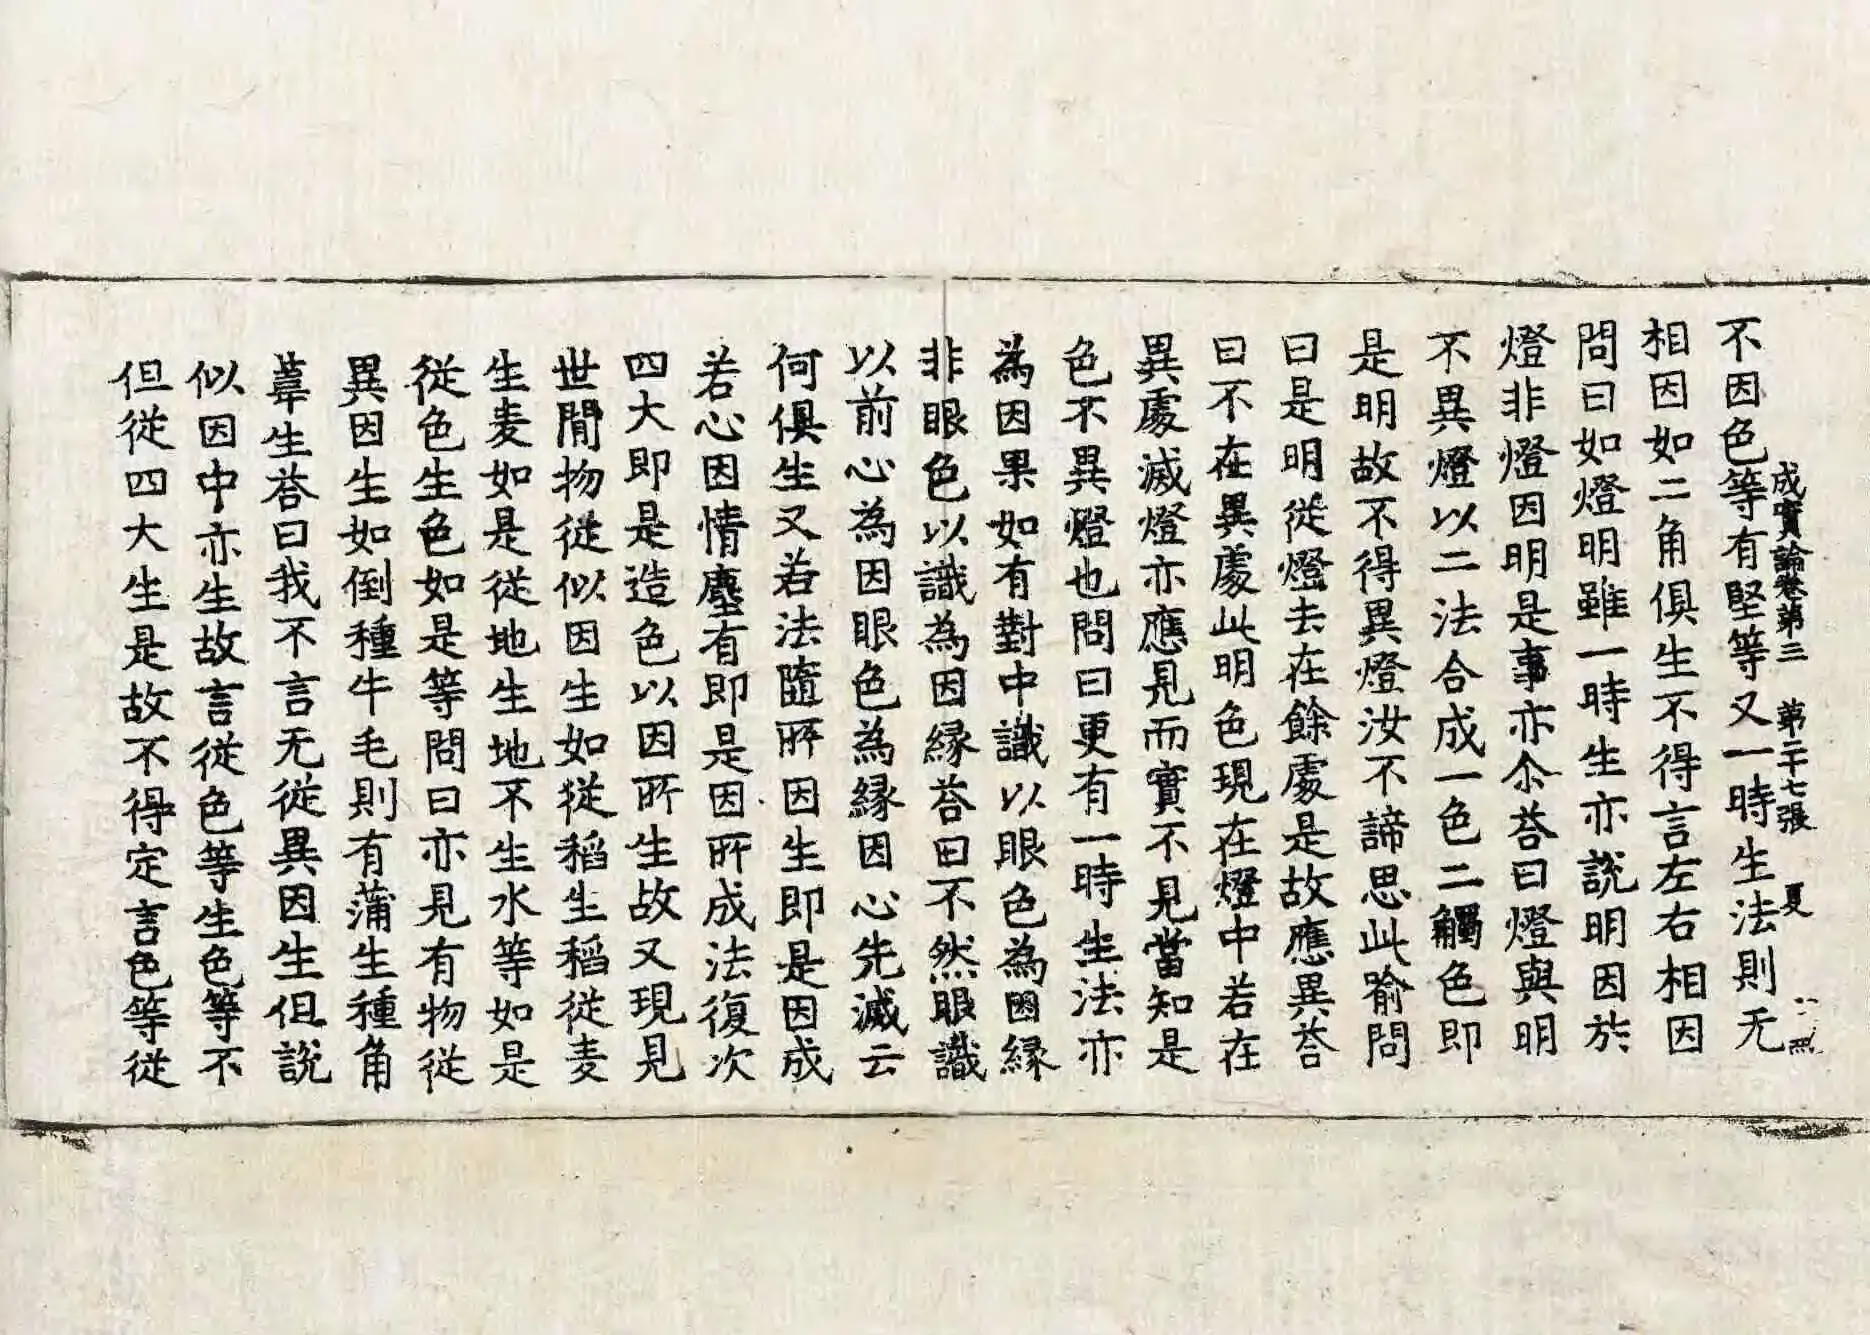 成實論卷第三 第二十七張 夏
不因色等有堅等又一時生法則无
相因如二角俱生不得言左右相因
問曰如燈明雖一時生亦說明因於
燈非燈因明是事亦尒荅曰燈與明
不異燈以二法合成一色二觸色即
是明故不得異燈汝不諦思此喻問
曰是明從燈去在餘處是故應異荅
曰不在異處此明色現在燈中若在
異處滅燈亦應見而實不見當知是
色不異燈也問曰更有一時生法亦
為因果如有對中識以眼色為因緣
非眼色以識為因緣荅曰不然眼識
以前心為因眼色為緣因心先滅云
何俱生又若法隨所因生即是因成
若心因情塵有即是因所成法復次
四大即是造色以因所生故又現見
世間物從似因生如從稻生稻從麦
生麦如是從地生地不生水等如是
從色生色如是等問曰亦見有物從
異因生如倒種牛毛則有蒲生種角
葦生荅曰我不言无從異因生但說
似因中亦生故言從色等生色等不
但從四大生是故不得定言色等從